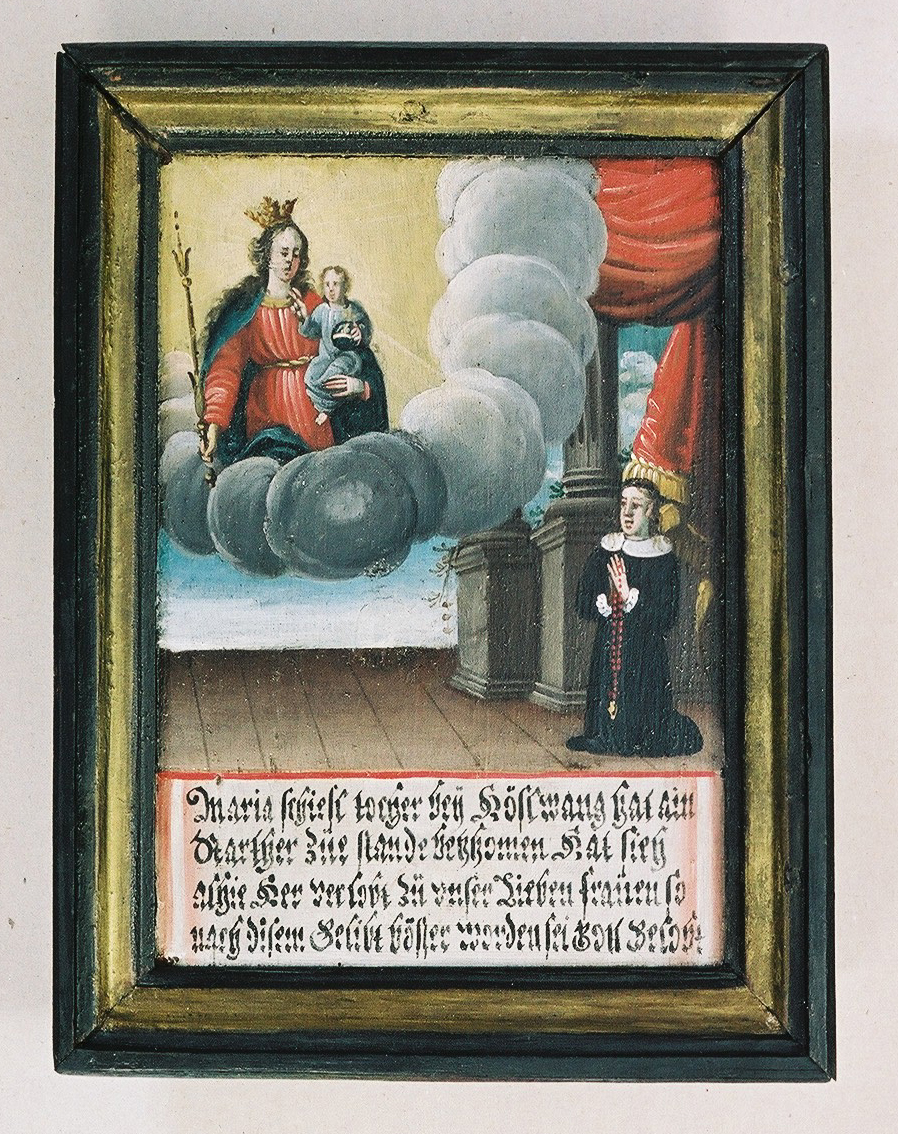 Maria schiesl tocher beÿ Höslwang hat ain
Starcher züe stande bekhomen. Hat sich
alhie Her verlobt Zü vnser Lieben fraüen so
nach disem Gelibt bösser worden sei Gott Gelobt